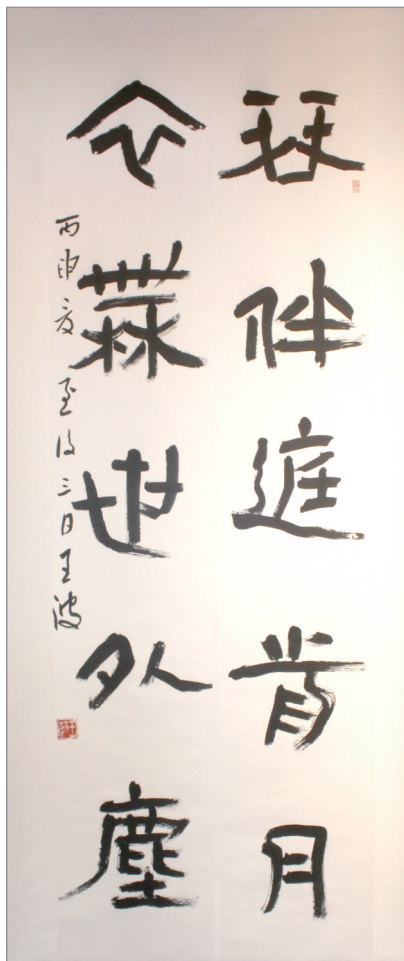 琴伴庭前月
衣無世外塵
丙申夏至後三日王波